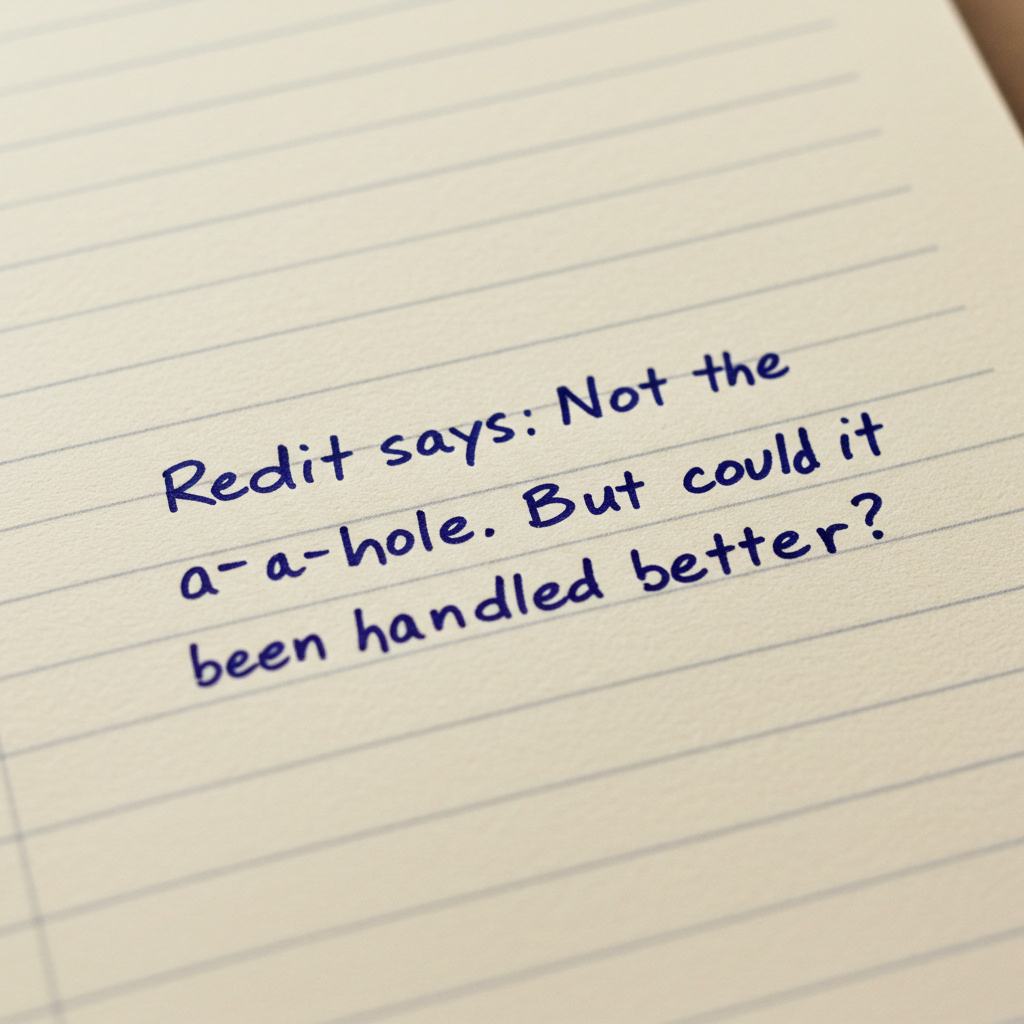 Redit says: Not the
a-a-hole. But could it
been handled better?